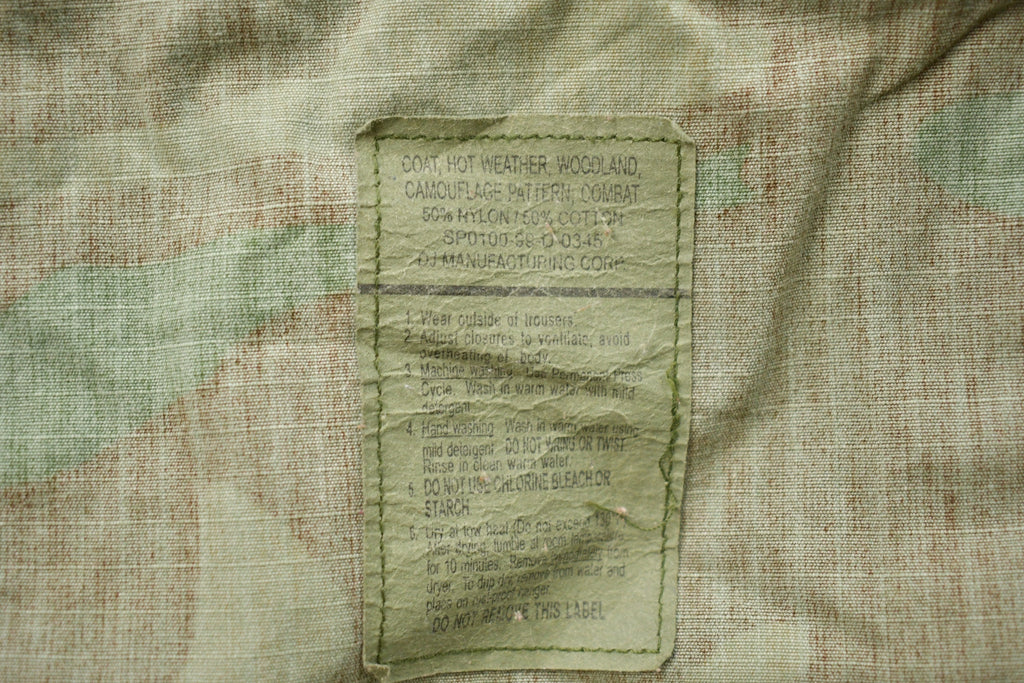 COAT, HOT WEATHER, WOODLAND,
CAMOUFLAGE PATTERN, COMBAT
50% NYLON / 50% COTTON
SP0100-99-D-0345
DJ MANUFACTURING CORP
1. Wear outside of trousers.
2. Adjust closures to ventilate, avoid
overheating of body.
3. Machine washing. Use Permanent Press
Cycle. Wash in warm water with mild
detergent.
4. Hand washing. Wash in warm water using
mild detergent. DO NOT WRING OR TWIST.
Rinse in clean warm water.
5. DO NOT USE CHLORINE BLEACH OR
STARCH
6. Dry at low heat (Do not exceed
After drying, tumble at room
for 10 minutes. Remove immediately from
dryer. To drip dry remove from water and
place on rustproof hanger.
DO NOT REMOVE THIS LABEL